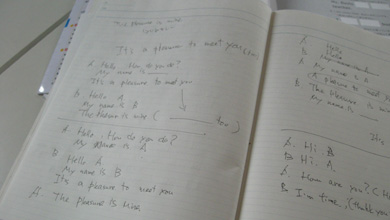 The Pleasure is mine
It's a pleasure to meet you
A. Hello. How do you do?
My name is ____
It's a pleasure to meet you
B. Hello A
My name is B
The Pleasure is mine ( ____ too )
A. Hello. How do you do?
My Name is A
B. Hello A
My name is B
It's a pleasure to meet you
A. The Pleasure is Mine
A. Hello
B. Hello
My name is A
B. The pleasure is
My name is
It's
A. Hi. B
B Hi. A
A. How are you?
B I'm fine,